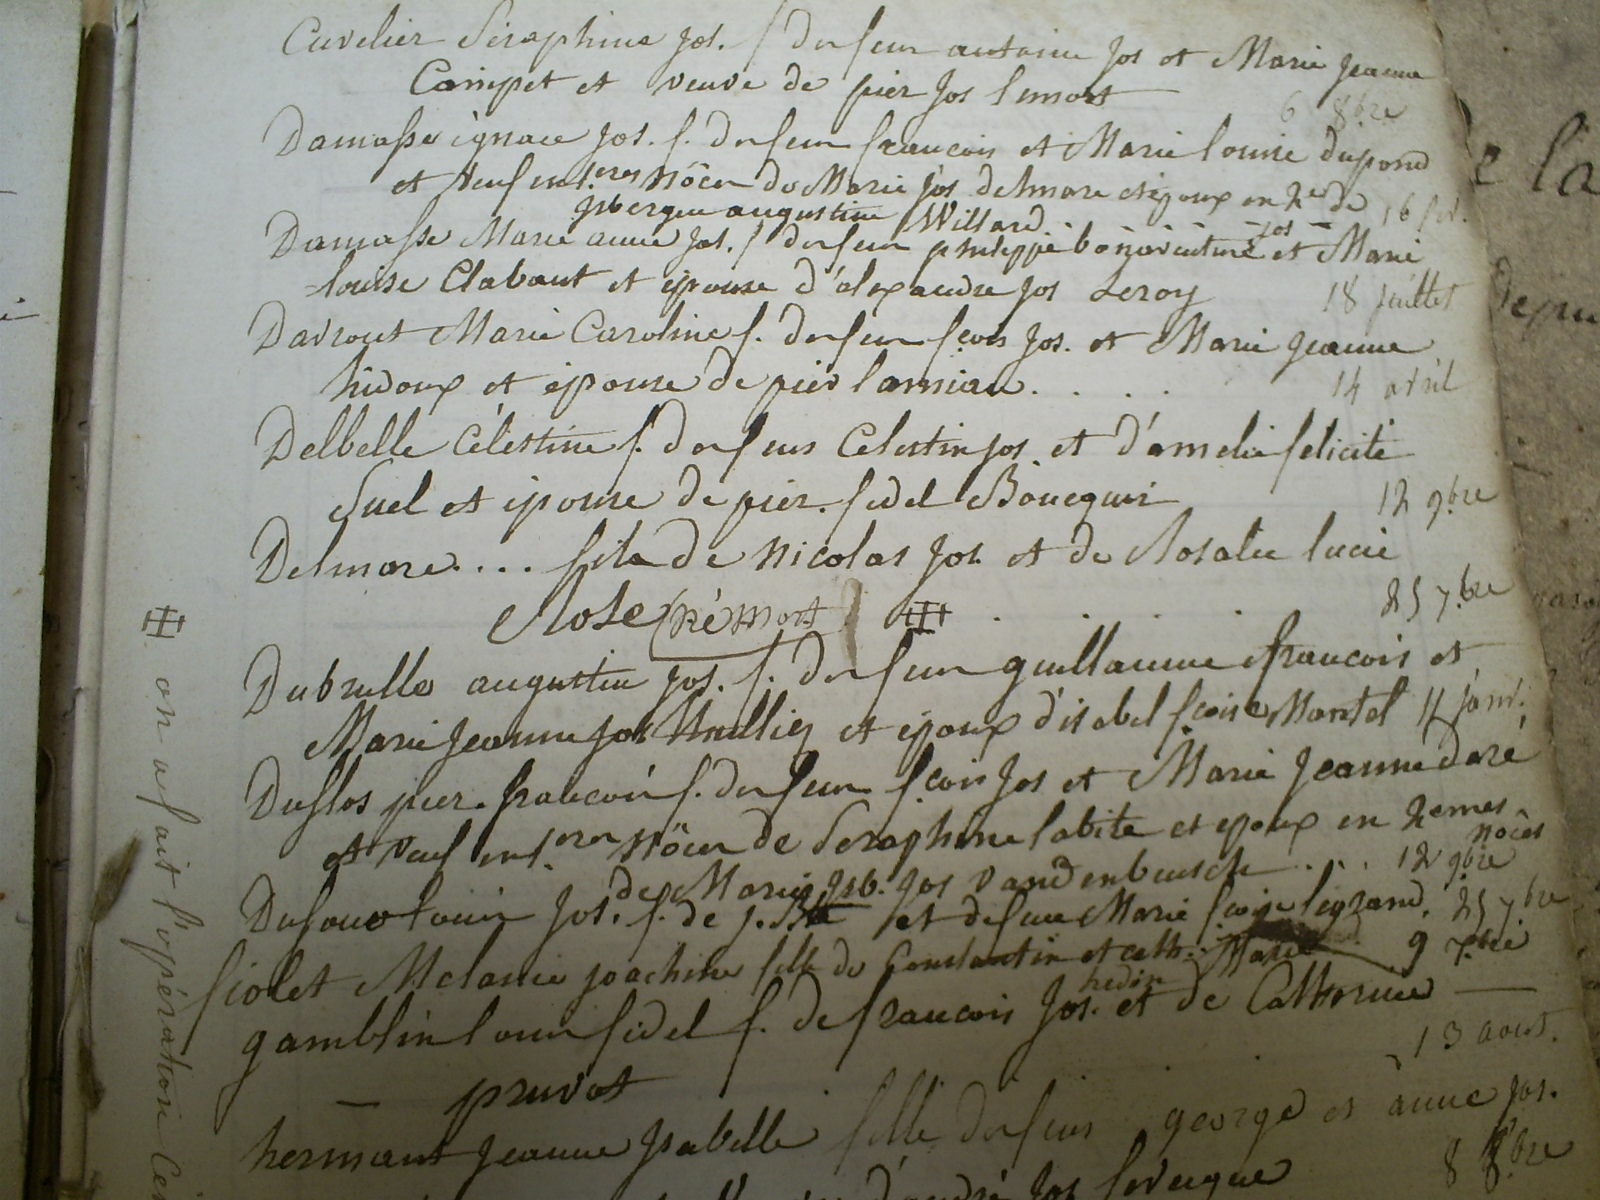 Cuvelier Séraphine jos. f. des feus antoine jos et Marie jeanne
Campet et veuve de pier jos lemort
6 8bre
Damasse ignace jos. f. des feus francois et Marie louise dupond
et veuf en 1.eres nôces de Marie jos delmare et époux en 2e de
isbergue augustine Willard. 16 fev.
Damasse Marie anne jos. f. des feus philippe bonaventure jos et Marie
louise Clabaut et épouse d'alexandre jos Leroy 18 juillet
Davrout Marie Caroline f. des feus fçois jos. et Marie jeanne
hidoux et épouse de pier lamiau . . . . 14 avril
Delbelle Célestine f. des feus Celestin jos et d'amelie felicité
Suel et épouse de pier. fidel Boucquir 12 9.bre
Delmare.... fils de nicolas jos. et de Rosalie lucie
Rose (né mort) . . . . 25 7.bre
Dubrulle augustin jos. f. des feus guillaume francois et
Marie jeanne jos et époux d'isabel fçoise Martel 11 janv.
Duflos pier. francois f. des feus fçois jos et Marie jeanne doré
et veuf en 1.eres nôces de Seraphine labite et époux en 2emes nôces
de Marie isb. jos Vandenbussche . . . 12 9bre
Dufour louis jos. f. de j. Bte et de feue Marie fçoise legrand. 25 7.bre
fiolet Melanie joachine fille de Constantin et cath. Marie 9 7bre
hedin
gamblin louis fidel f. de francois jos. et de Catherine
— pruvot 13 aout.
hermant jeanne isabelle fille des feus george et anne jos.
d'andré jos leveque 8 8bre
on a fait l'opération